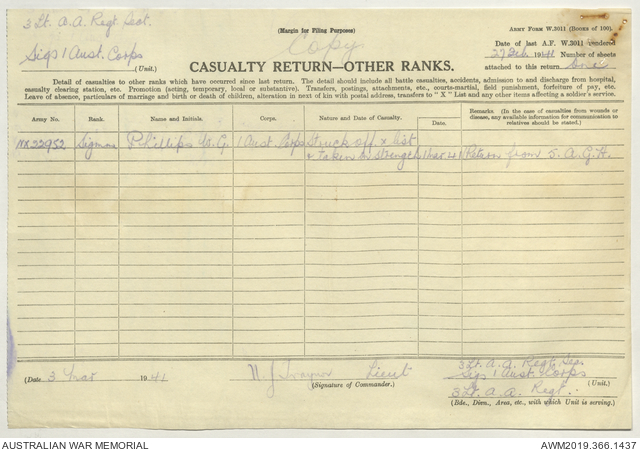 3 Lt. A. A. Regt Sect.
Sigs 1 Aust. Corps
(Unit.)
(Margin for Filing Purposes)
Copy
ARMY FORM W.3011 (BOOKS OF 100).
Date of last A.F. W.3011 rendered
27 Feb 1941 Number of sheets
attached to this return One
CASUALTY RETURN—OTHER RANKS.
Detail of casualties to other ranks which have occurred since last return. The detail should include all battle casualties, accidents, admission to and discharge from hospital,
casualty clearing station, etc. Promotion (acting, temporary, local or substantive). Transfers, postings, attachments, etc., courts-martial, field punishment, forfeiture of pay, etc.
Leave of absence, particulars of marriage and birth or death of children, alteration in next of kin with postal address, transfers to "X" List and any other items affecting a soldier's service.
Army No. Rank. Name and Initials. Corps. Nature of Casualty. Date. Remarks (In the case of casualties from wounds or disease, any available information for communication to relatives should be stated.)
NX22952 Sigmn Phillips W. G. 1 Aust Corps Struck off x list
& taken on strength 1 Mar 41 Return from 5. A.G.H.
(Date 3 Mar 1941 Lieut
(Signature of Commander.)
3 Lt. A. A. Regt. Sec.
Sigs 1 Aust. Corps
(Unit.)
3 Lt. A. A. Regt.
(Bde., Divn., Area, etc., with which Unit is serving.)
AUSTRALIAN WAR MEMORIAL
AWM2019.366.1437